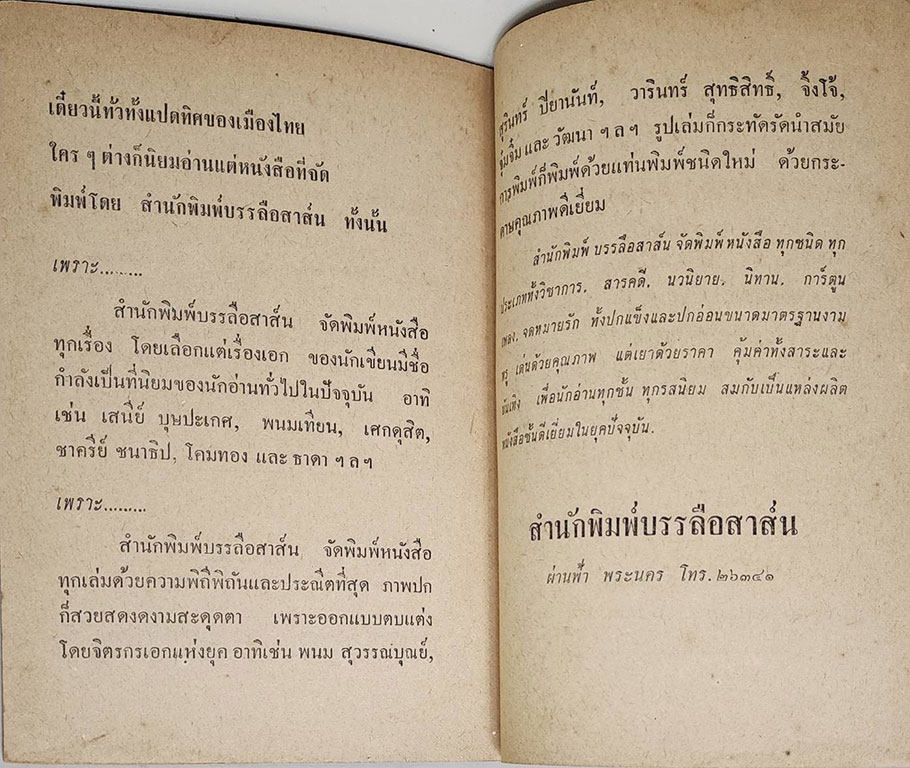 เดี๋ยวนี้ทั่วทั้งแปดทิศของเมืองไทย
ใคร ๆ ต่างก็นิยมอ่านแต่หนังสือที่จัด
พิมพ์โดย สำนักพิมพ์บรรลือสาส์น ทั้งนั้น
เพราะ.........
สำนักพิมพ์บรรลือสาส์น จัดพิมพ์หนังสือ
ทุกเรื่อง โดยเลือกแต่เรื่องเอก ของนักเขียนมีชื่อ
กำลังเป็นที่นิยมของนักอ่านทั่วไปในปัจจุบัน อาทิ
เช่น เสนีย์ บุษปะเกศ, พนมเทียน, เศกดุสิต,
ชาครีย์ ชนาธิป, โคมทอง และ ธาดา ฯ ล ฯ
เพราะ.........
สำนักพิมพ์บรรลือสาส์น จัดพิมพ์หนังสือ
ทุกเล่มด้วยความพิถีพิถันและประณีตที่สุด ภาพปก
ก็สวยสดงดงามสะดุดตา เพราะออกแบบตบแต่ง
โดยจิตรกรเอกแห่งยุค อาทิเช่น พนม สุวรรณบุณย์,
สุรินทร์ ปิยานันท์, วารินทร์ สุทธิสิทธิ์, จิ้งโจ้,
จุ๋มจิ๋ม และ วัฒนา ฯ ล ฯ รูปเล่มก็กระทัดรัดนำสมัย
การพิมพ์ก็พิมพ์ด้วยแท่นพิมพ์ชนิดใหม่ ด้วยกระ-
ดาษคุณภาพดีเยี่ยม
สำนักพิมพ์ บรรลือสาส์น จัดพิมพ์ หนังสือ ทุกชนิด ทุก
ประเภททั้งวิชาการ. สารคดี. นวนิยาย. นิทาน. การ์ตูน
เพลง. จดหมายรัก ทั้งปกแข็งและปกอ่อนขนาดมาตรฐานงาม
หรู เด่นด้วยคุณภาพ แต่เยาด้วยราคา คุ้มค่าทั้งสาระและ
บันเทิง เพื่อนักอ่านทุกชั้น ทุกรสนิยม สมกับเป็นแหล่งผลิต
หนังสือชั้นดีเยี่ยมในยุคปัจจุบัน.
สำนักพิมพ์บรรลือสาส์น
ผ่านฟ้า พระนคร โทร. ๒๖๓๔๑